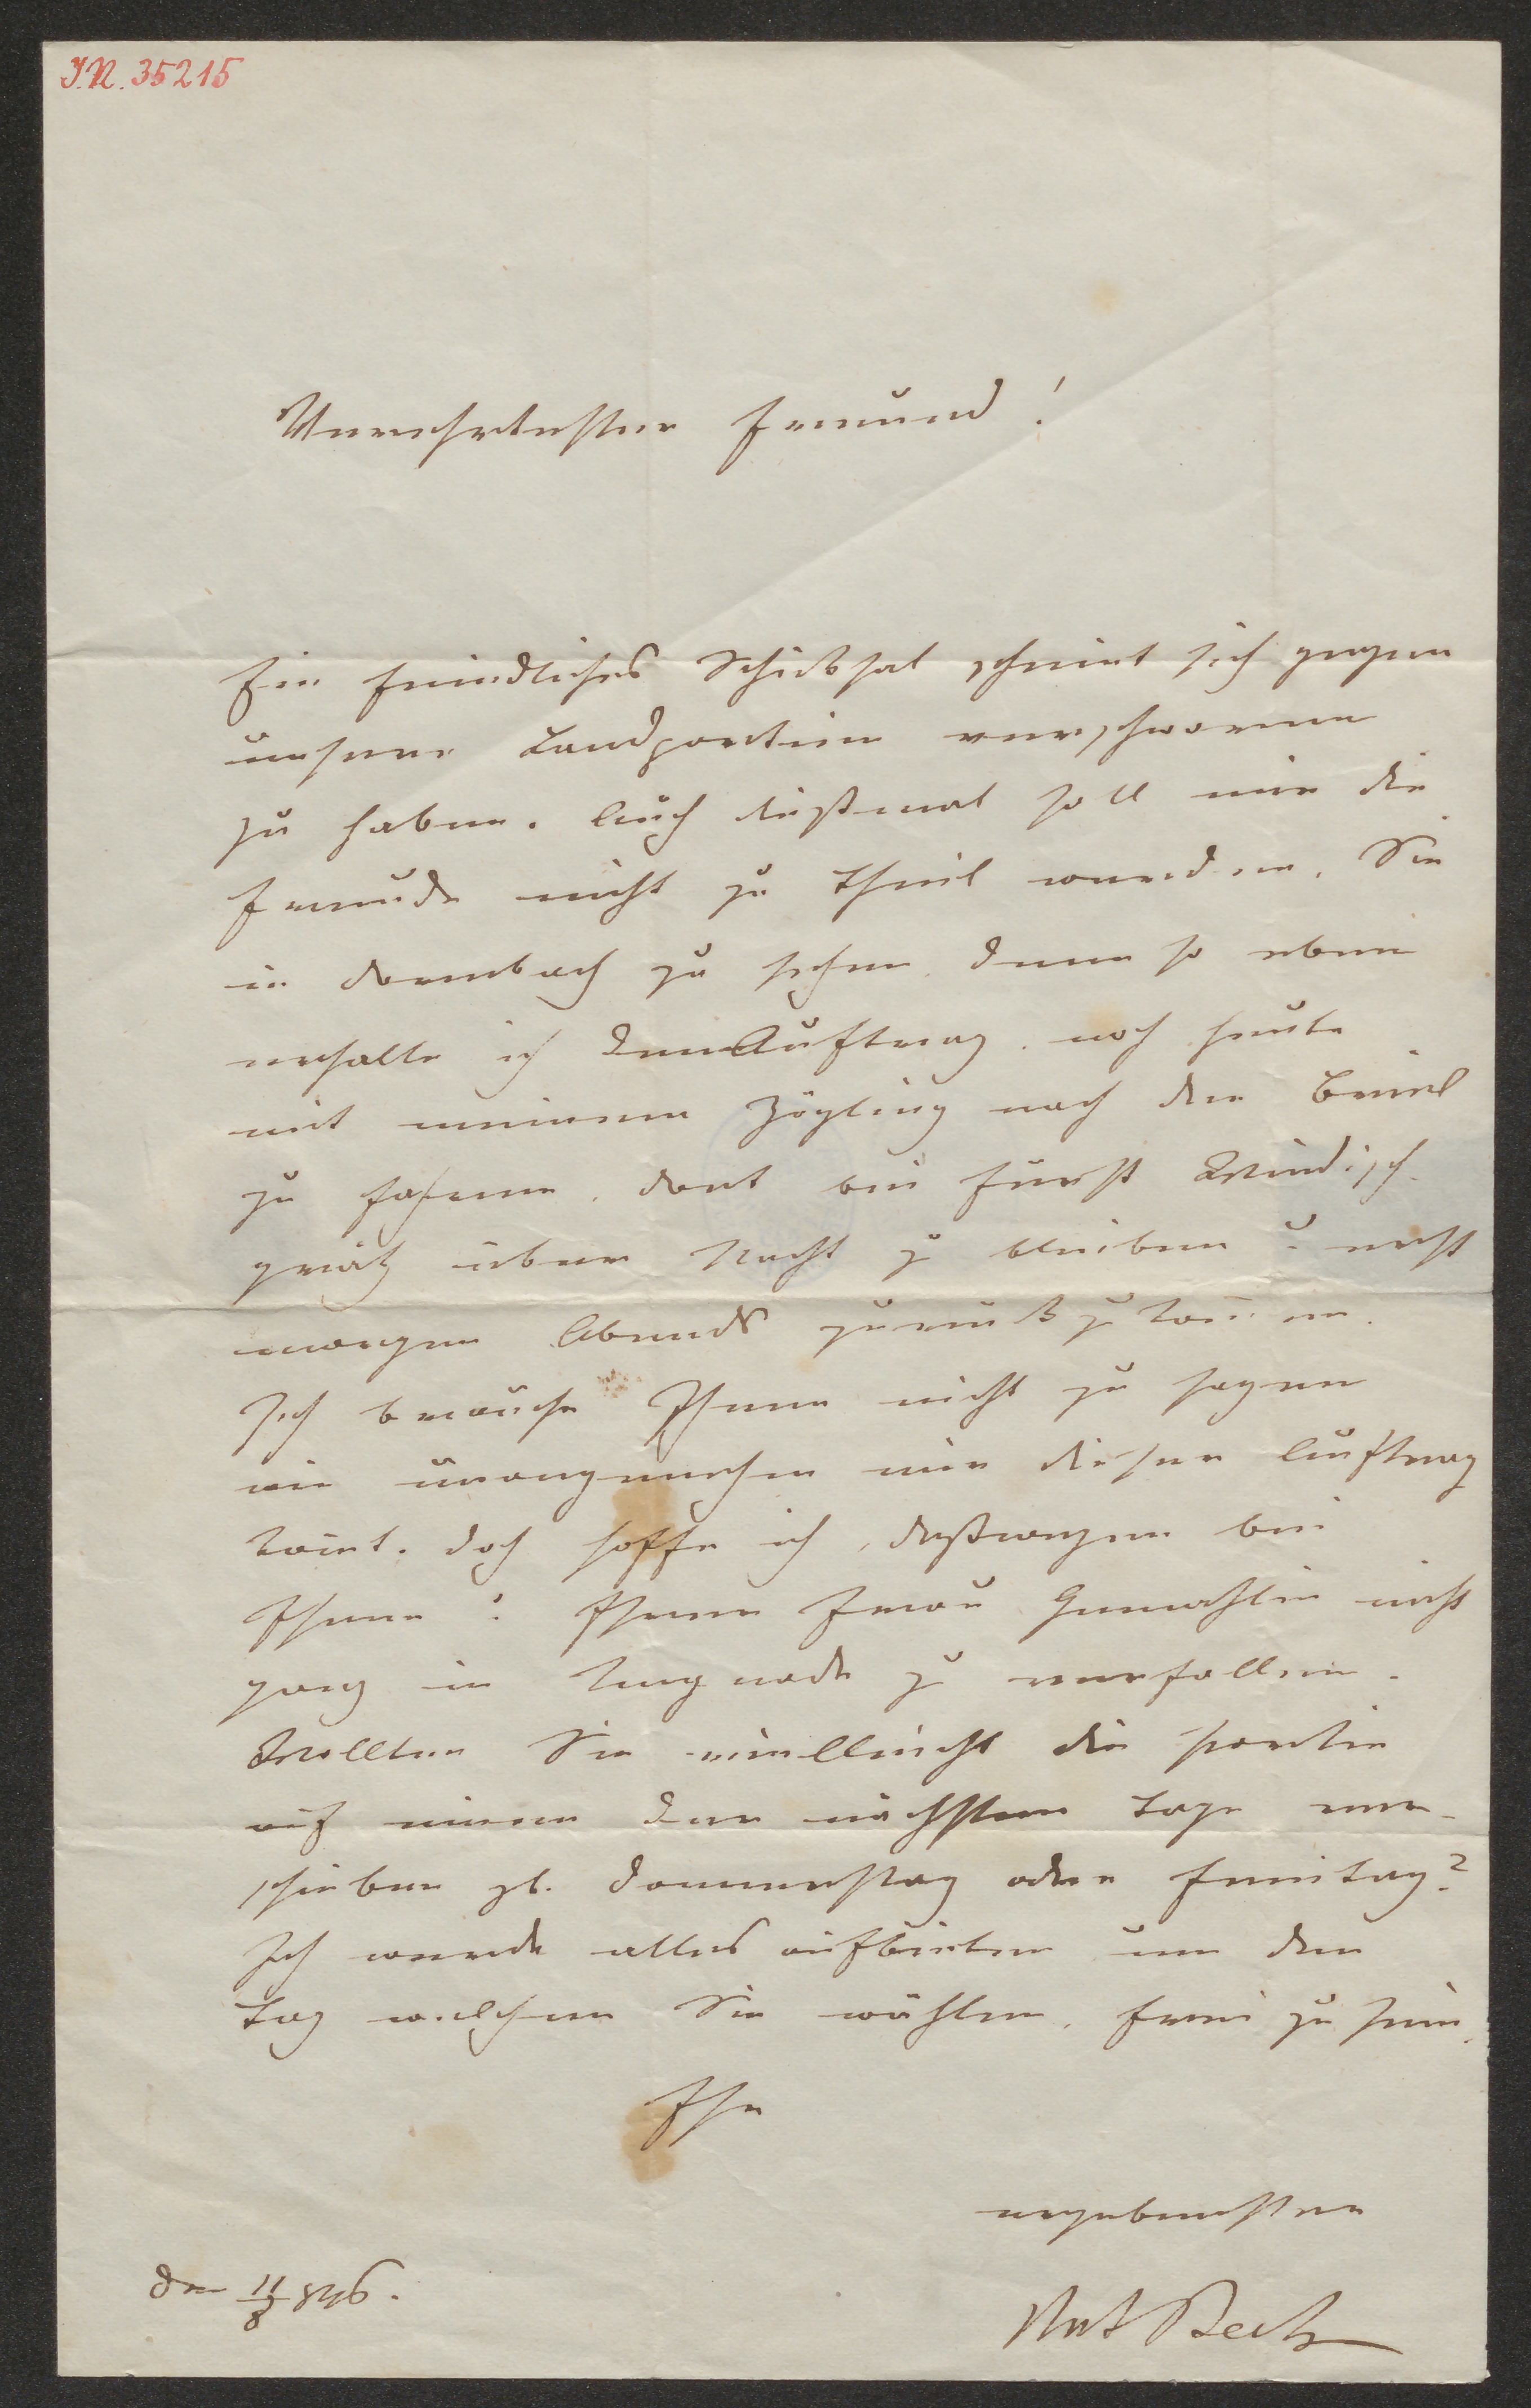 I.N. 35215
Verehrtester Freund!
Ein feindliches Schicksal scheint sich gegen
unsere Landpartien verschworen
zu haben. Auch dießmal soll mir die
Freude nicht zu Theil werden, Sie
in Dornbach zu sehen, denn so eben
erhalte ich den Auftrag, noch heute
mit meinem Zögling nach der Brühl
zu fahren, dort bei Fürst Windisch-
grätz über Nacht zu bleiben u erst
morgen Abends zurückzukom̄en.
Ich brauche Ihnen nicht zu sagen
wie unangenehm mir dieser Auftrag
kom̄t. Doch hoffe ich, deßwegen bei
Ihnen u Ihrer Frau Gemahlin nicht
ganz in Ungnade zu verfallen.
Wollten Sie vielleicht die Partie
auf einen der nächsten Tage ver-
schieben zb. Donnerstag oder Freitag?
Ich werde alles aufbieten um den
Tag welchen Sie wählen, frei zu sein.
Ihr
ergebenster
den 11/8 846.